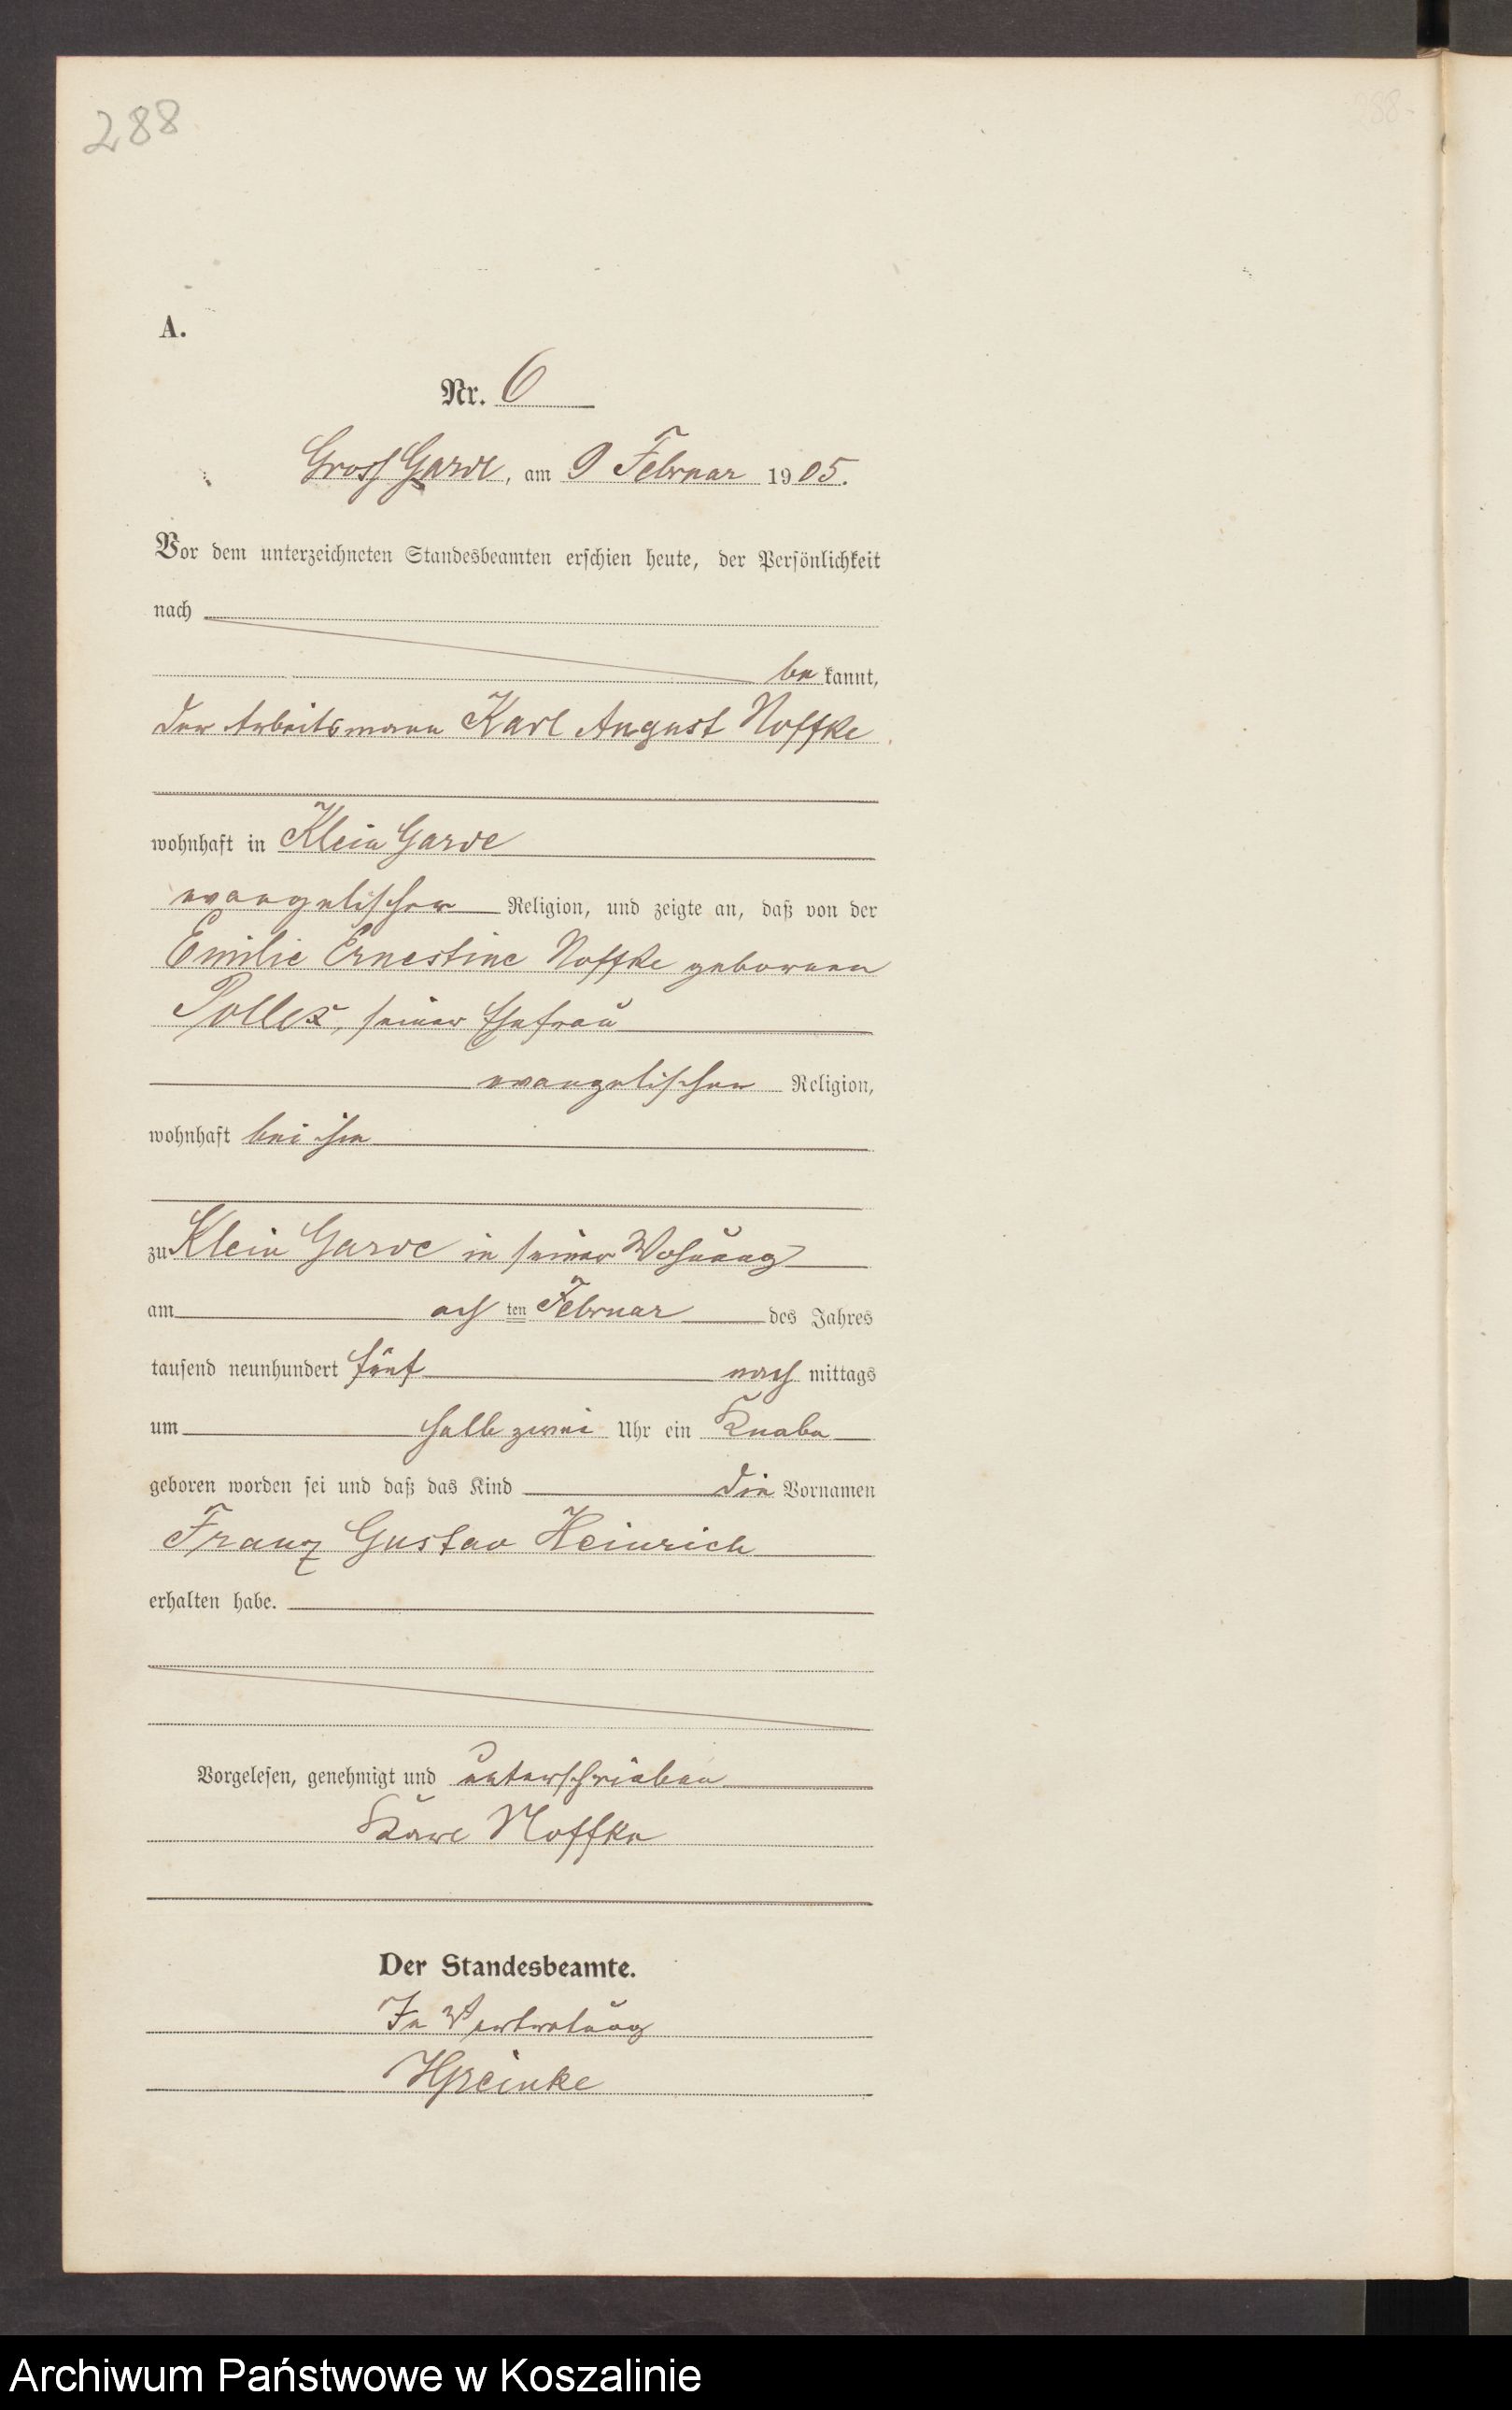 288
A.
Nr. 6
Gross Garde, am 9 Februar 1905.
Vor dem unterzeichneten Standesbeamten erschien heute, der Persönlichkeit
nach
bekannt,
der Arbeitsmann Karl August Noffke
wohnhaft in Klein Garde
evangelischer Religion, und zeigte an, daß von der
Emilie Ernestine Noffke geborenen
Pollex, seiner Ehefrau
evangelischer Religion,
wohnhaft bei ihm
zu Klein Garde in seiner Wohnung
am achten Februar des Jahres
tausend neunhundert fünf nachmittags
um halb zwei Uhr ein Knabe
geboren worden sei und daß das Kind die Vornamen
Franz Gustav Heinrich
erhalten habe.
Vorgelesen, genehmigt und unterschrieben
Karl Noffke
Der Standesbeamte.
In Vertretung
Archiwum Państwowe w Koszalinie